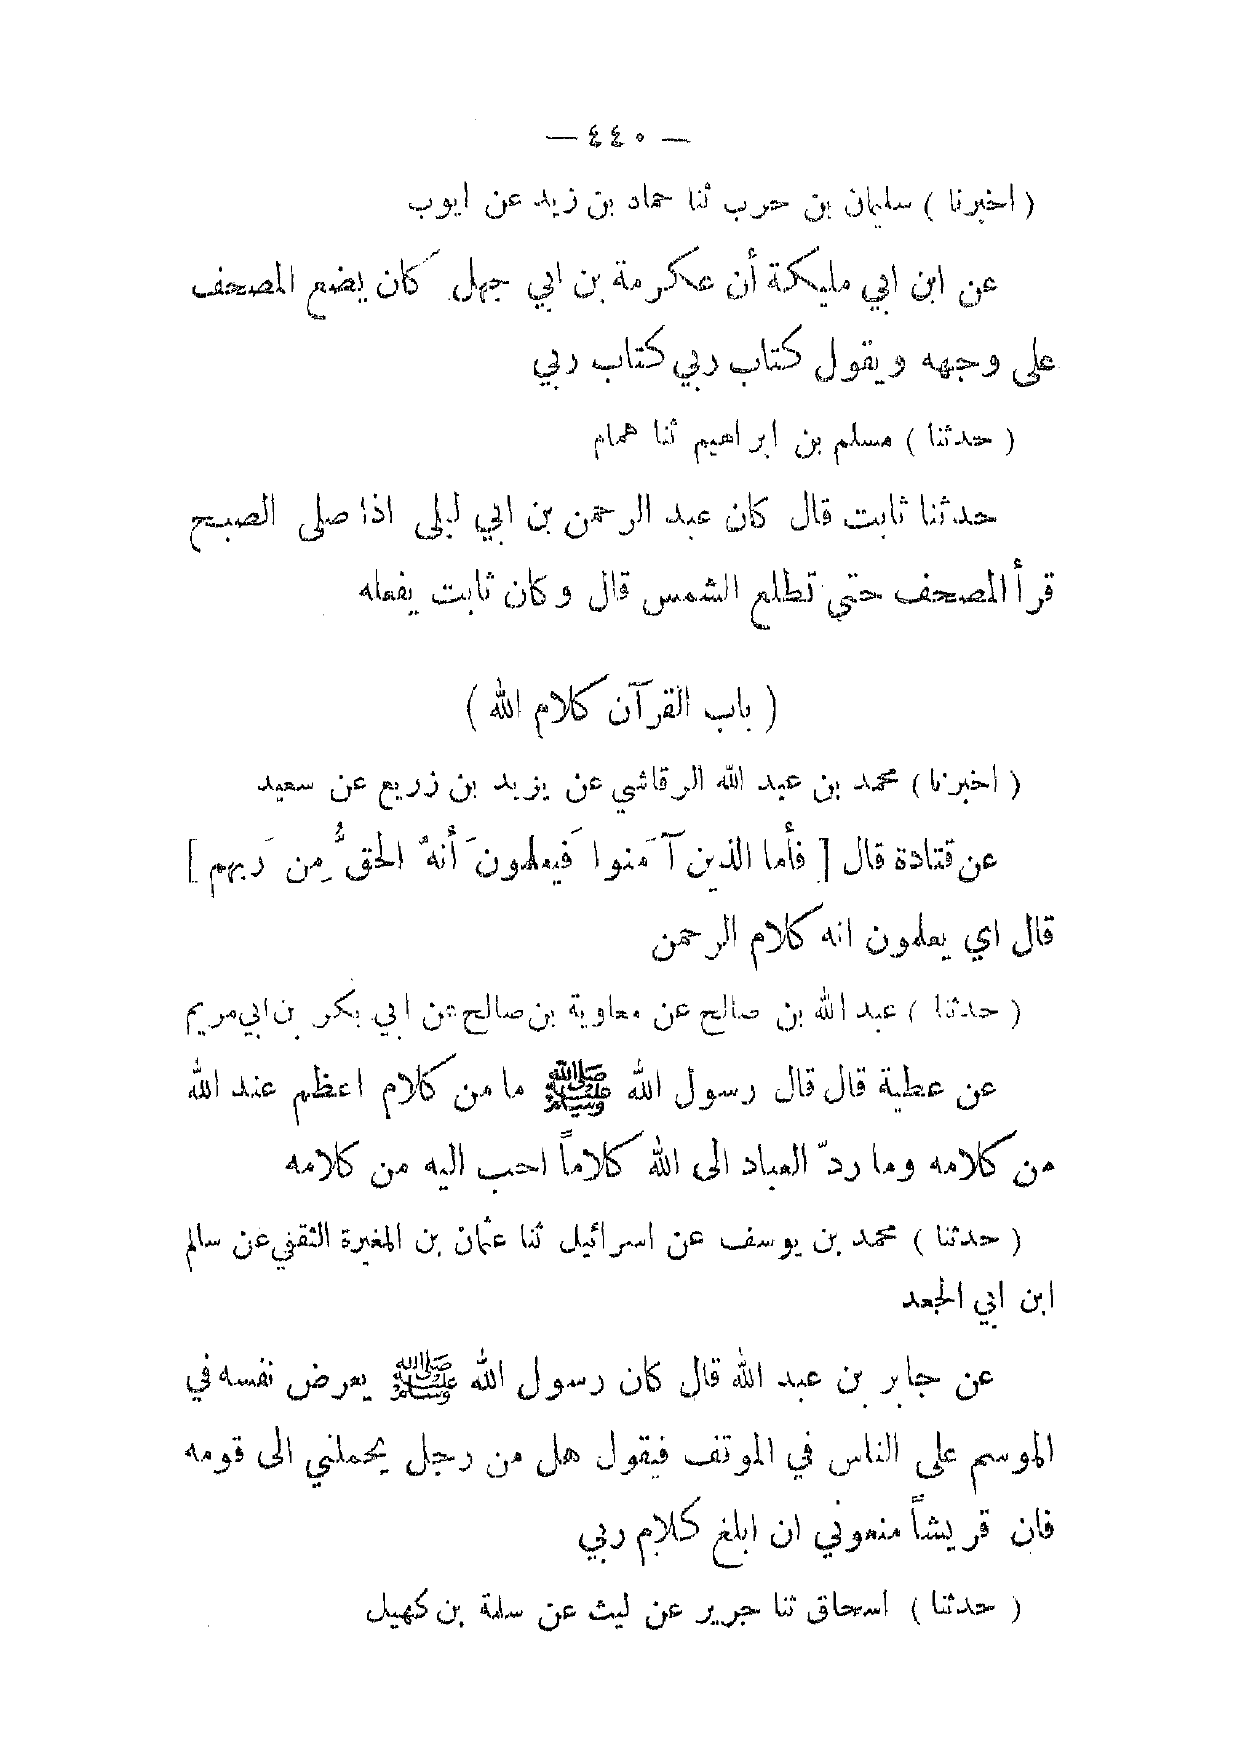 — ٤٤٠ —
( اخبرنا ) سليمان بن حرب ثنا حماد بن زيد عن ايوب
عن ابن ابي مليكة أن عكرمة بن ابي جهل كان يضع المصحف
على وجهه ويقول كتاب ربي كتاب ربي
( حدثنا ) مسلم بن ابراهيم ثنا همام
حدثنا ثابت قال كان عبد الرحمن بن ابي ليلى اذا صلى الصبح
قرأ المصحف حتى تطلع الشمس قال وكان ثابت يفعله
( باب القرآن كلام الله )
( اخبرنا ) محمد بن عبد الله الرقاشي عن يزيد بن زريع عن سعيد
عن قتادة قال [ فأما الذين آمَنوا فَيعلمونَ أنهُ الحقُّ مِن رَبهم ]
قال اي يعلمون انه كلام الرحمن
( حدثنا ) عبد الله بن صالح عن معاوية بن صالح عن ابي بكر بن ابي مريم
عن عطية قال قال رسول الله ﷺ ما من كلام اعظم عند الله
من كلامه وما ردّ العباد الى الله كلاماً احب اليه من كلامه
( حدثنا ) محمد بن يوسف عن اسرائيل ثنا عثمان بن المغيرة الثقفي عن سالم
ابن ابي الجعد
عن جابر بن عبد الله قال كان رسول الله ﷺ يعرض نفسه في
الموسم على الناس في الموقف فيقول هل من رجل يحملني الى قومه
فان قريشاً منعوني ان ابلغ كلام ربي
( حدثنا ) اسحاق ثنا جرير عن ليث عن سلمة بن كهيل